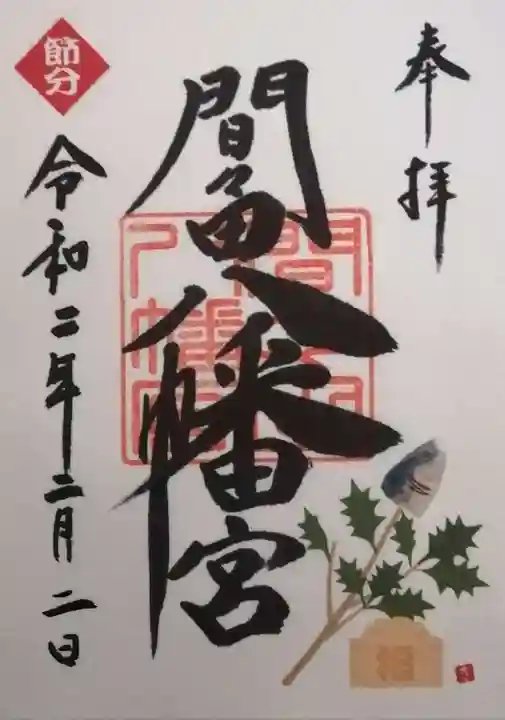 奉拝
間々田八幡宮
節分
令和二年二月二日